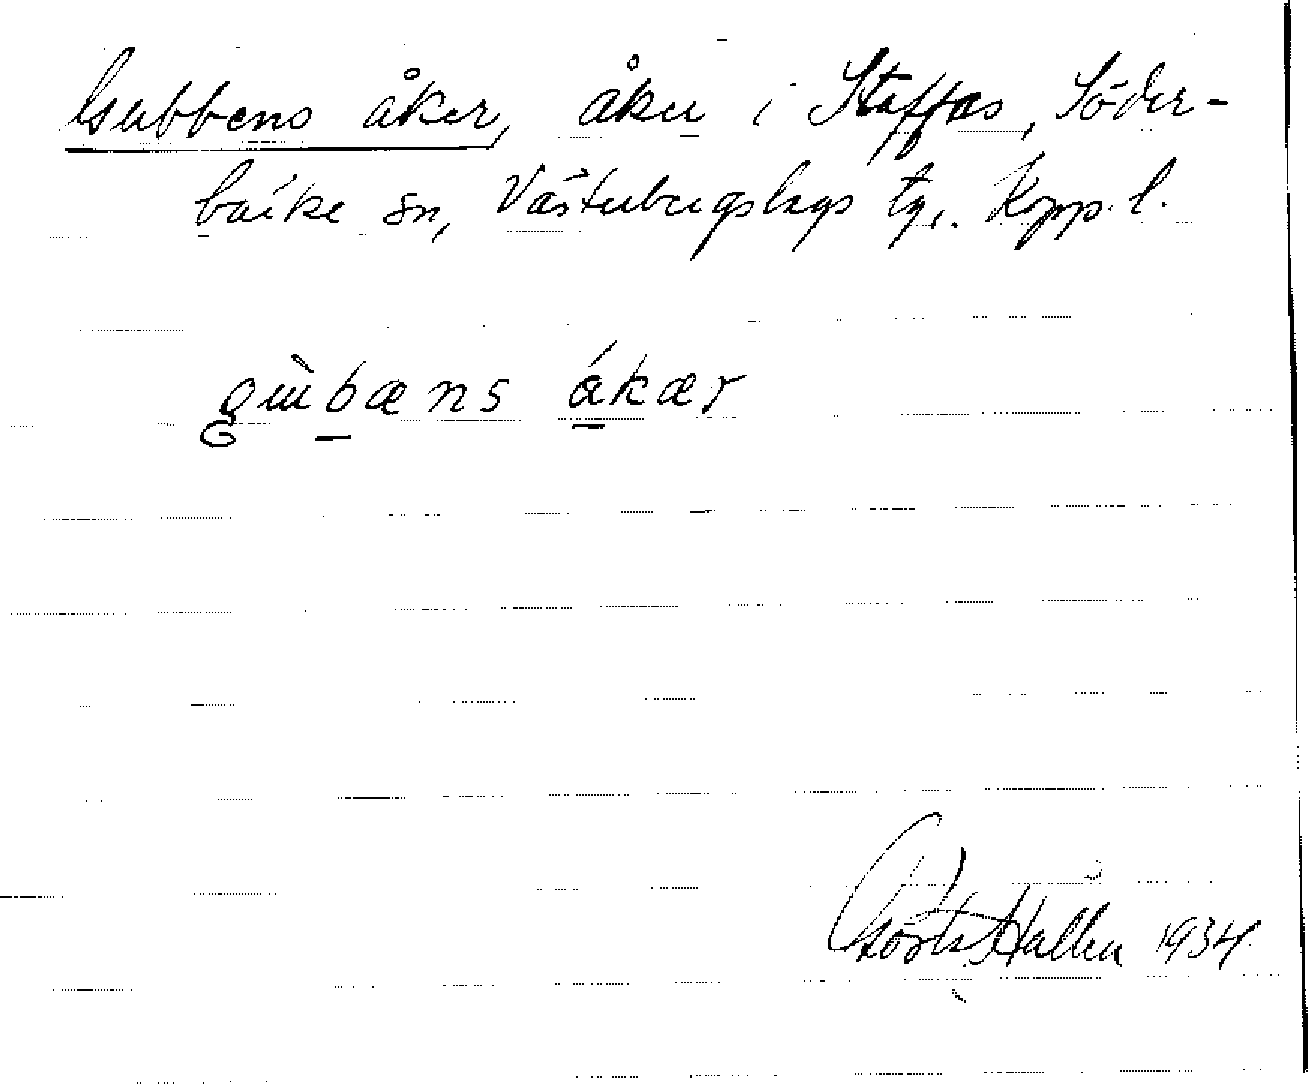 Gubbens åker, åker i Staffas, Söder-
bärke sn, Västerbergslags tg. Kopp. l.
gùbæns ákær
Gösta Hallén 1934